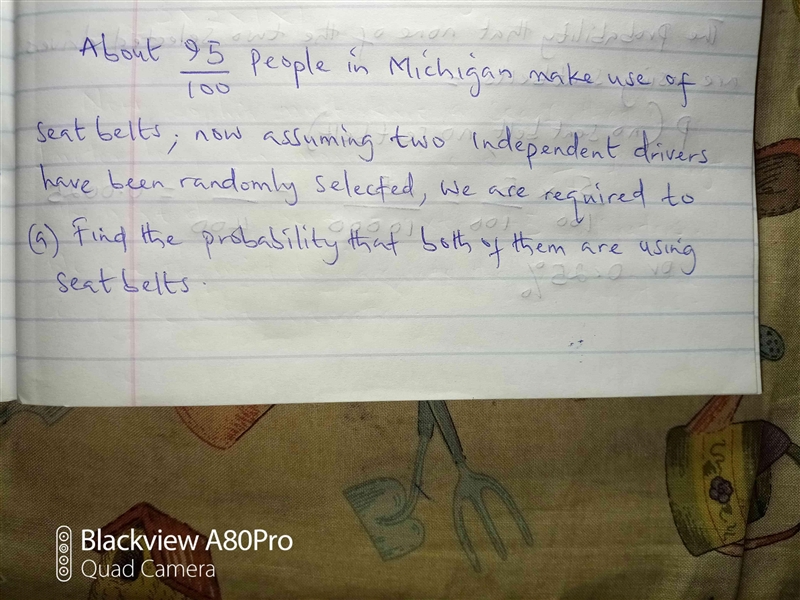 About 95/100 People in Michigan make use of
seat belts; now assuming two independent drivers
have been randomly selected, we are required to
(a) Find the probability that both of them are using
seat belts.
Blackview A80Pro
Quad Camera